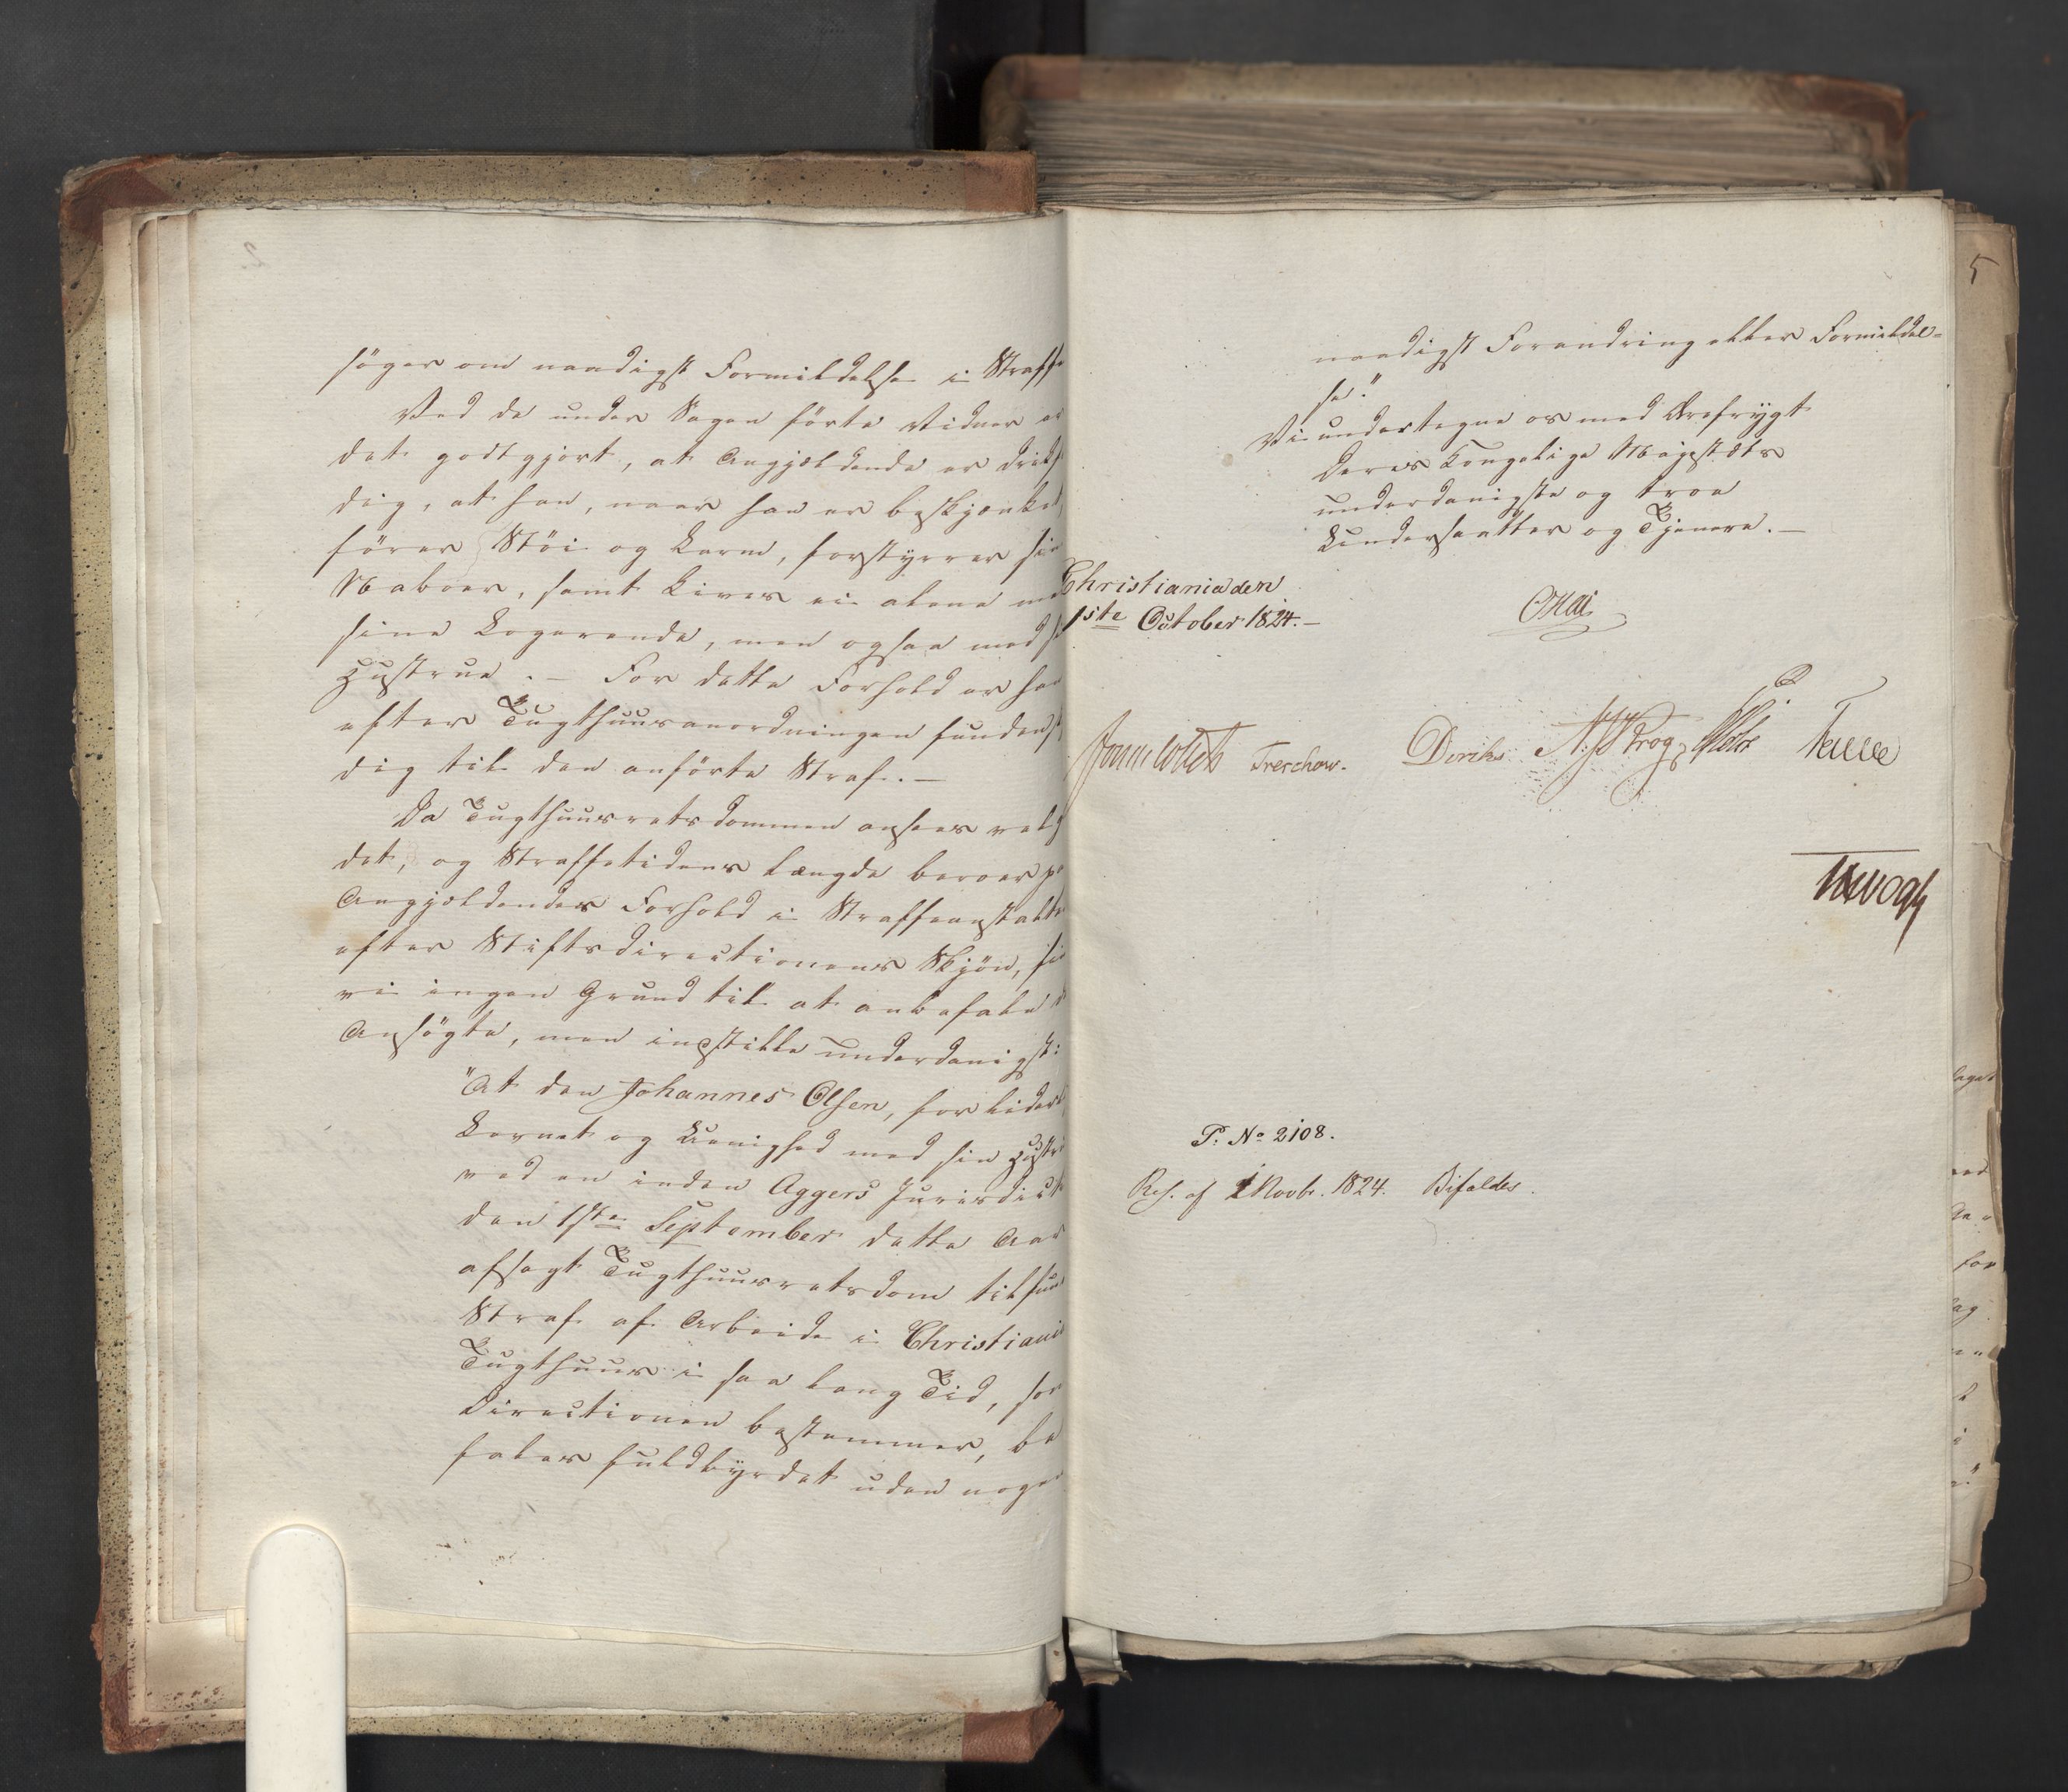 søger om naadigst Formildelse i Straffe
Ved de under Sagen førte Vidner er
det godtgjort, at Angjældende er drikf
dig, at han, naar han er beskjænket,
fører Støi og Larm, forstyrrer sin
Naboer, samt lever ei alene
sine Logerende, men ogsaa med
Hustrue. – For dette Forhold er han
efter Tugthuusanordningen funden s
dig til den anførte Straf. –
Da Tugthuusretsdommen ansees velg
det, og Straffetidens Længde beroer pa
Angjældendes Forhold i Straffeanstalte
efter Stiftsdirectionens Skjøn, fin
vi ingen Grund til at anbefale d
Ansøgte, men indstille underdanigst:
"At den Johannes Olsen, for liderl
Levnet og Uenighed med sin Hustr
ved en inden Aggers Jurisdict
den 1ste September dette Aar
afsagt Tugthuusretsdom tilfun
Straf af Arbeide i Christiania
Tugthuus i saa lang Tid, som
Directionen bestemmer, be
fales fuldbyrdet uden nogen
5
naadigst Forandring eller Formildel=
se."
Vi undertegne os med Ærefrygt
Deres Kongelige Majestæts
underdanigste og troe
Undersaatter og Tjenere. –
Christiania den
1ste October 1824. –
Treschow. Diriks Krog Motz
Vogt
P: No 2108.
Res. af 1 Novbr. 1824. Bifaldes.